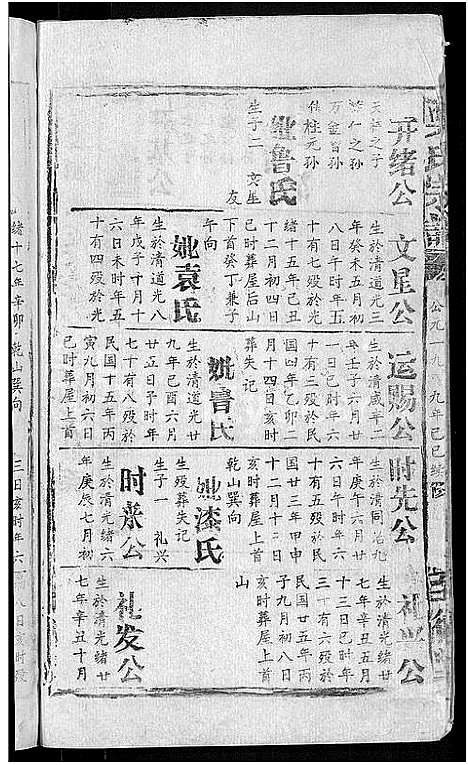 开绪公
天
之子
仁之孙
万金曾孙
桂元孙
妣鲁氏
生子二 文星
友
文星公
生於清道光三
年癸未五月初
八日午时年五
十有七殁於光
绪十五年己丑
十二月初四日
巳时葬屋后山
下首癸丁兼子
午向
妣袁氏
生於清道光八
年戊子十月十
六日未时年五
十有四殁於光
绪十七年辛卯
乾山巽向
运赐公
生於清咸丰二
年壬子六月廿
一日巳时年六
十有三殁於民
国四年乙卯二
月十四日亥时
葬失记
妣鲁氏
生於清道光廿
九年己酉六月
廿五日子时年
七十有八殁於
民国十五年丙
寅九月初六日
巳时葬屋上首
时先公
生於清同治九
年庚午六月廿
六日午时年六
十有五殁於民
国廿三年甲申
十二月十二日
亥时葬屋上首
乾山巽向
妣漆氏
生殁葬失记
生子一 礼兴
时来公
生於清光绪六
年庚辰七月初
三日亥时年六
礼兴公
生於清光绪廿
七年辛丑五月
十三日巳时年
三十有六殁於
民国廿五年丙
子九月初八日
亥时葬屋上首
山
礼发公
生於清光绪廿
七年辛丑十月
八日亥时殁
公元一九八九年己巳